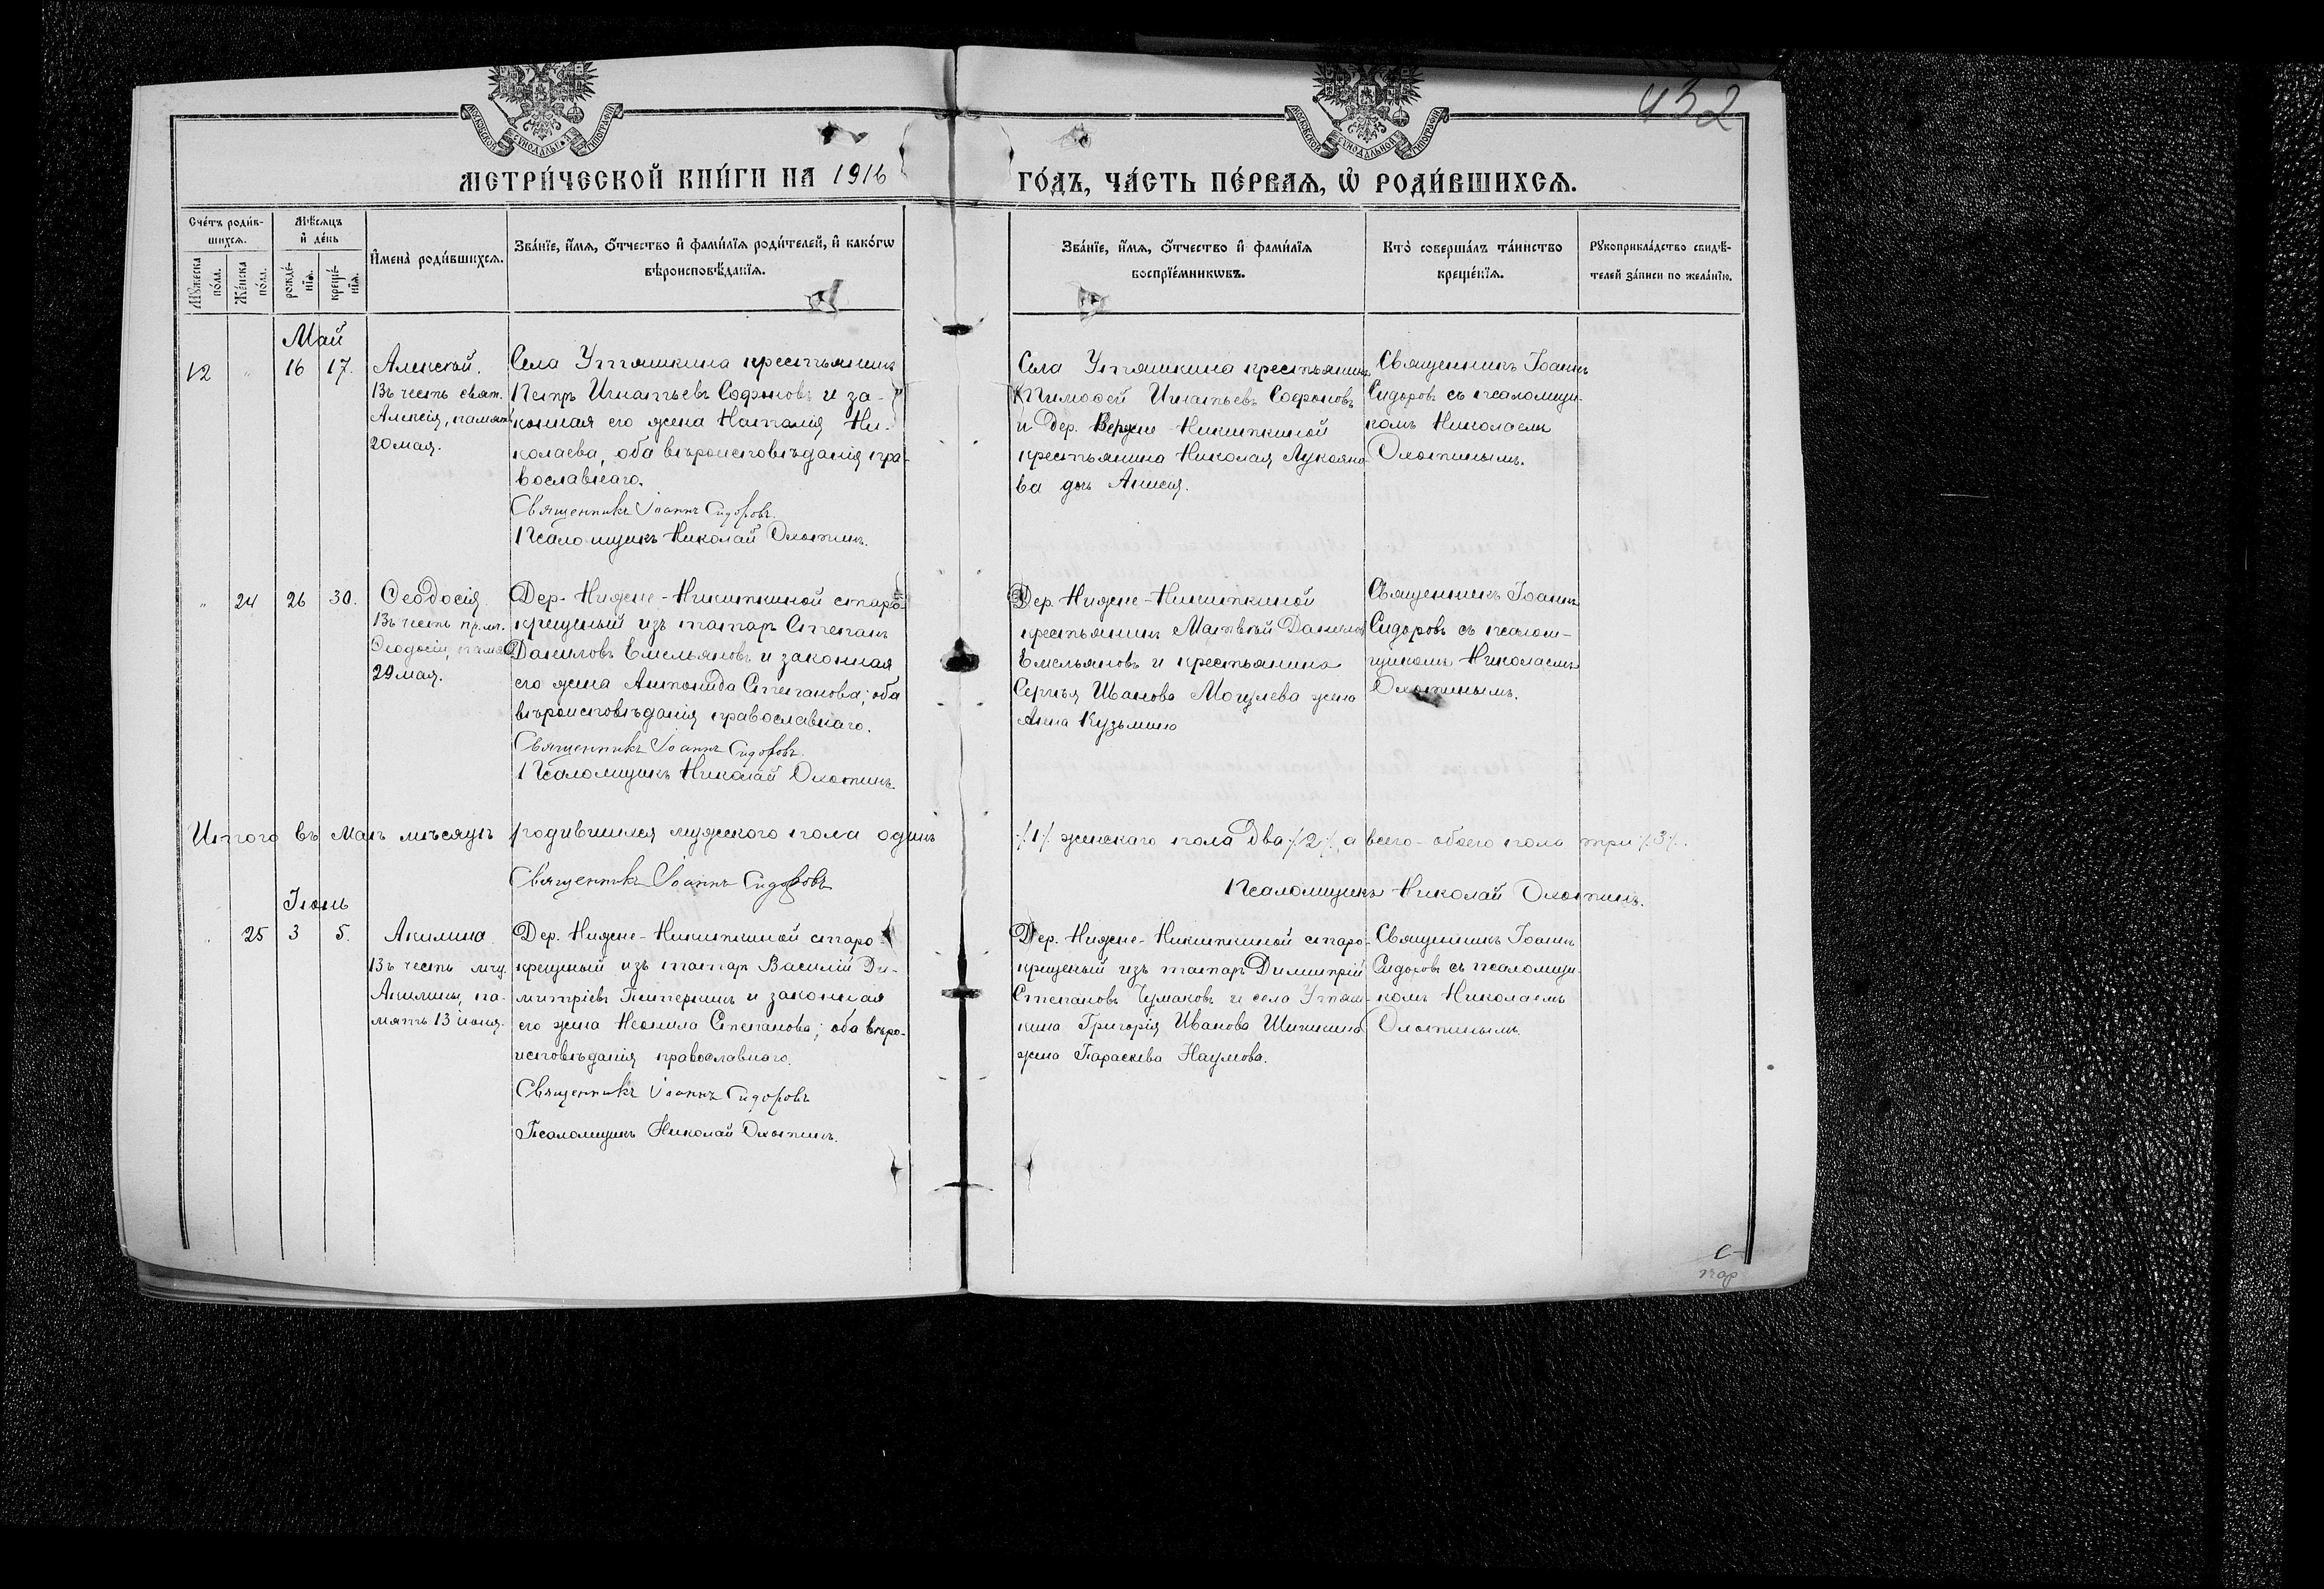 432
МЕТРИ́ЧЕСКОЙ КНИ́ГИ НА 1916
ГО́ДЪ, ЧА́СТЬ ПЕ́РВАѦ, Ѡ҆ РОДИ́ВШИХСѦ.
Сче́тъ роди́в-
шихсѧ.
Мѣ́сѧцъ
и҆ де́нь
Мꙋ́жеска по́ла.
Же́нска по́ла.
рожде́-
нїѧ.
креще́-
нїѧ.
И҆мена̀ роди́вшихсѧ.
Зва́нїе, и҆́мѧ, ѻ҆́тчество и҆ фами́лїѧ роди́телей, и҆ како́гѡ
вѣроисповѣ́данїѧ.
Зва́нїе, и҆́мѧ, ѻ҆́тчество и҆ фами́лїѧ
воспрїе́мникѡвъ.
Кто̀ соверша́лъ та́инство
креще́нїѧ.
Рꙋкоприкла́дство свидѣ́-
телей за́писи по жела́нїю.
Май
12 " 16 17.
Алексѣй.
Въ честь свят.
Алексія, память
20 мая.
Села Утяшкина крестьянинъ
Петръ Игнатьевъ Софроновъ и за-
конная его жена Наталія Ни-
колаева, оба вѣроисповѣданія пра-
вославнаго.
Священникъ Іоаннъ Сидоровъ.
Псаломщикъ Николай Охотинъ.
Села Утяшкина крестьянинъ
Тимофей Игнатьевъ Софроновъ
и дер. Верхне-Никиткиной
крестьянина Николая Лукояно-
ва дочь Анисія.
Священникъ Іоаннъ
Сидоровъ съ псаломщи-
комъ Николаемъ
Охотинымъ.
" 24 26 30.
Ѳеодосія
Въ честь пр. мч.
Ѳеодосіи, память
29 мая.
Дер. Нижне-Никиткиной старо-
крещеный изъ татаръ Степанъ
Даниловъ Емельяновъ и законная
его жена Антонида Степанова; оба
вѣроисповѣданія православнаго.
Священникъ Іоаннъ Сидоровъ.
Псаломщикъ Николай Охотинъ.
Дер. Нижне-Никиткиной
крестьянинъ Матвѣй Даниловъ
Емельяновъ и крестьянина
Сергѣя Иванова жена
Анна Кузьмина
Священникъ Іоаннъ
Сидоровъ съ псалом-
щикомъ Николаемъ
Охотинымъ.
Итого въ маѣ мѣсяцѣ родившихся мужского пола одинъ /1/ женскаго пола два /2/, а всего обоего пола три /3/.
Священникъ Іоаннъ Сидоровъ
Псаломщикъ Николай Охотинъ.
Іюнь
" 25 3 5.
Акилина.
Въ честь мчц.
Акилины, па-
мять 13 іюня.
Дер. Нижне-Никиткиной старо-
крещеный изъ татаръ Василій Ди-
митріевъ и законная
его жена Неонила Степанова; оба вѣро-
исповѣданія православнаго.
Священникъ Іоаннъ Сидоровъ
Псаломщикъ Николай Охотинъ.
Дер. Нижне-Никиткиной старо-
крещеный изъ татаръ Димитрій
Степановъ Чумаковъ и села Утяш-
кина Григорія Иванова Шишкина
жена Параскева Наумова.
Священникъ Іоаннъ
Сидоровъ съ псаломщи-
комъ Николаемъ
Охотинымъ.